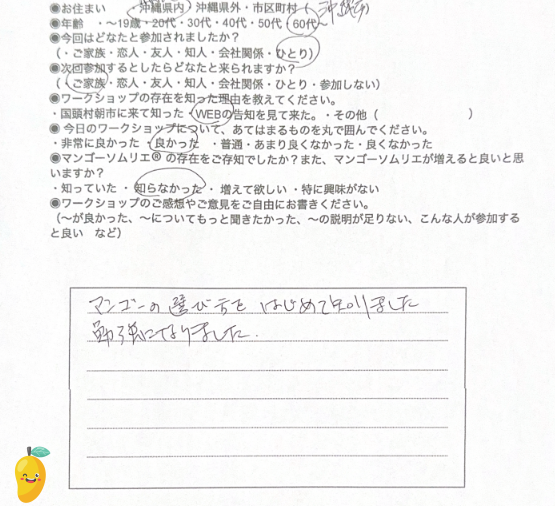 ◉お住まい ・沖縄県内・沖縄県外・市区町村（
◉年齢 ・～19歳・20代・30代・40代・50代・60代～
◉今回はどなたと参加されましたか？
（・ご家族・恋人・友人・知人・会社関係・ひとり）
◉次回参加するとしたらどなたと来られますか？
（・ご家族・恋人・友人・知人・会社関係・ひとり・参加しない）
◉ワークショップの存在を知った理由を教えてください。
・国頭村朝市に来て知った ・WEBの告知を見て来た。・その他（ ）
◉今日のワークショップについて、あてはまるものを丸で囲んでください。
・非常に良かった ・良かった ・普通・あまり良くなかった・良くなかった
◉マンゴーソムリエ®の存在をご存知でしたか？また、マンゴーソムリエが増えると良いと思
いますか？
・知っていた ・知らなかった ・増えて欲しい ・特に興味がない
◉ワークショップのご感想やご意見をご自由にお書きください。
（～が良かった、～についてもっと聞きたかった、～の説明が足りない、こんな人が参加する
と良い など）
マンゴーの選び方をはじめて知りました
勉強になりました.